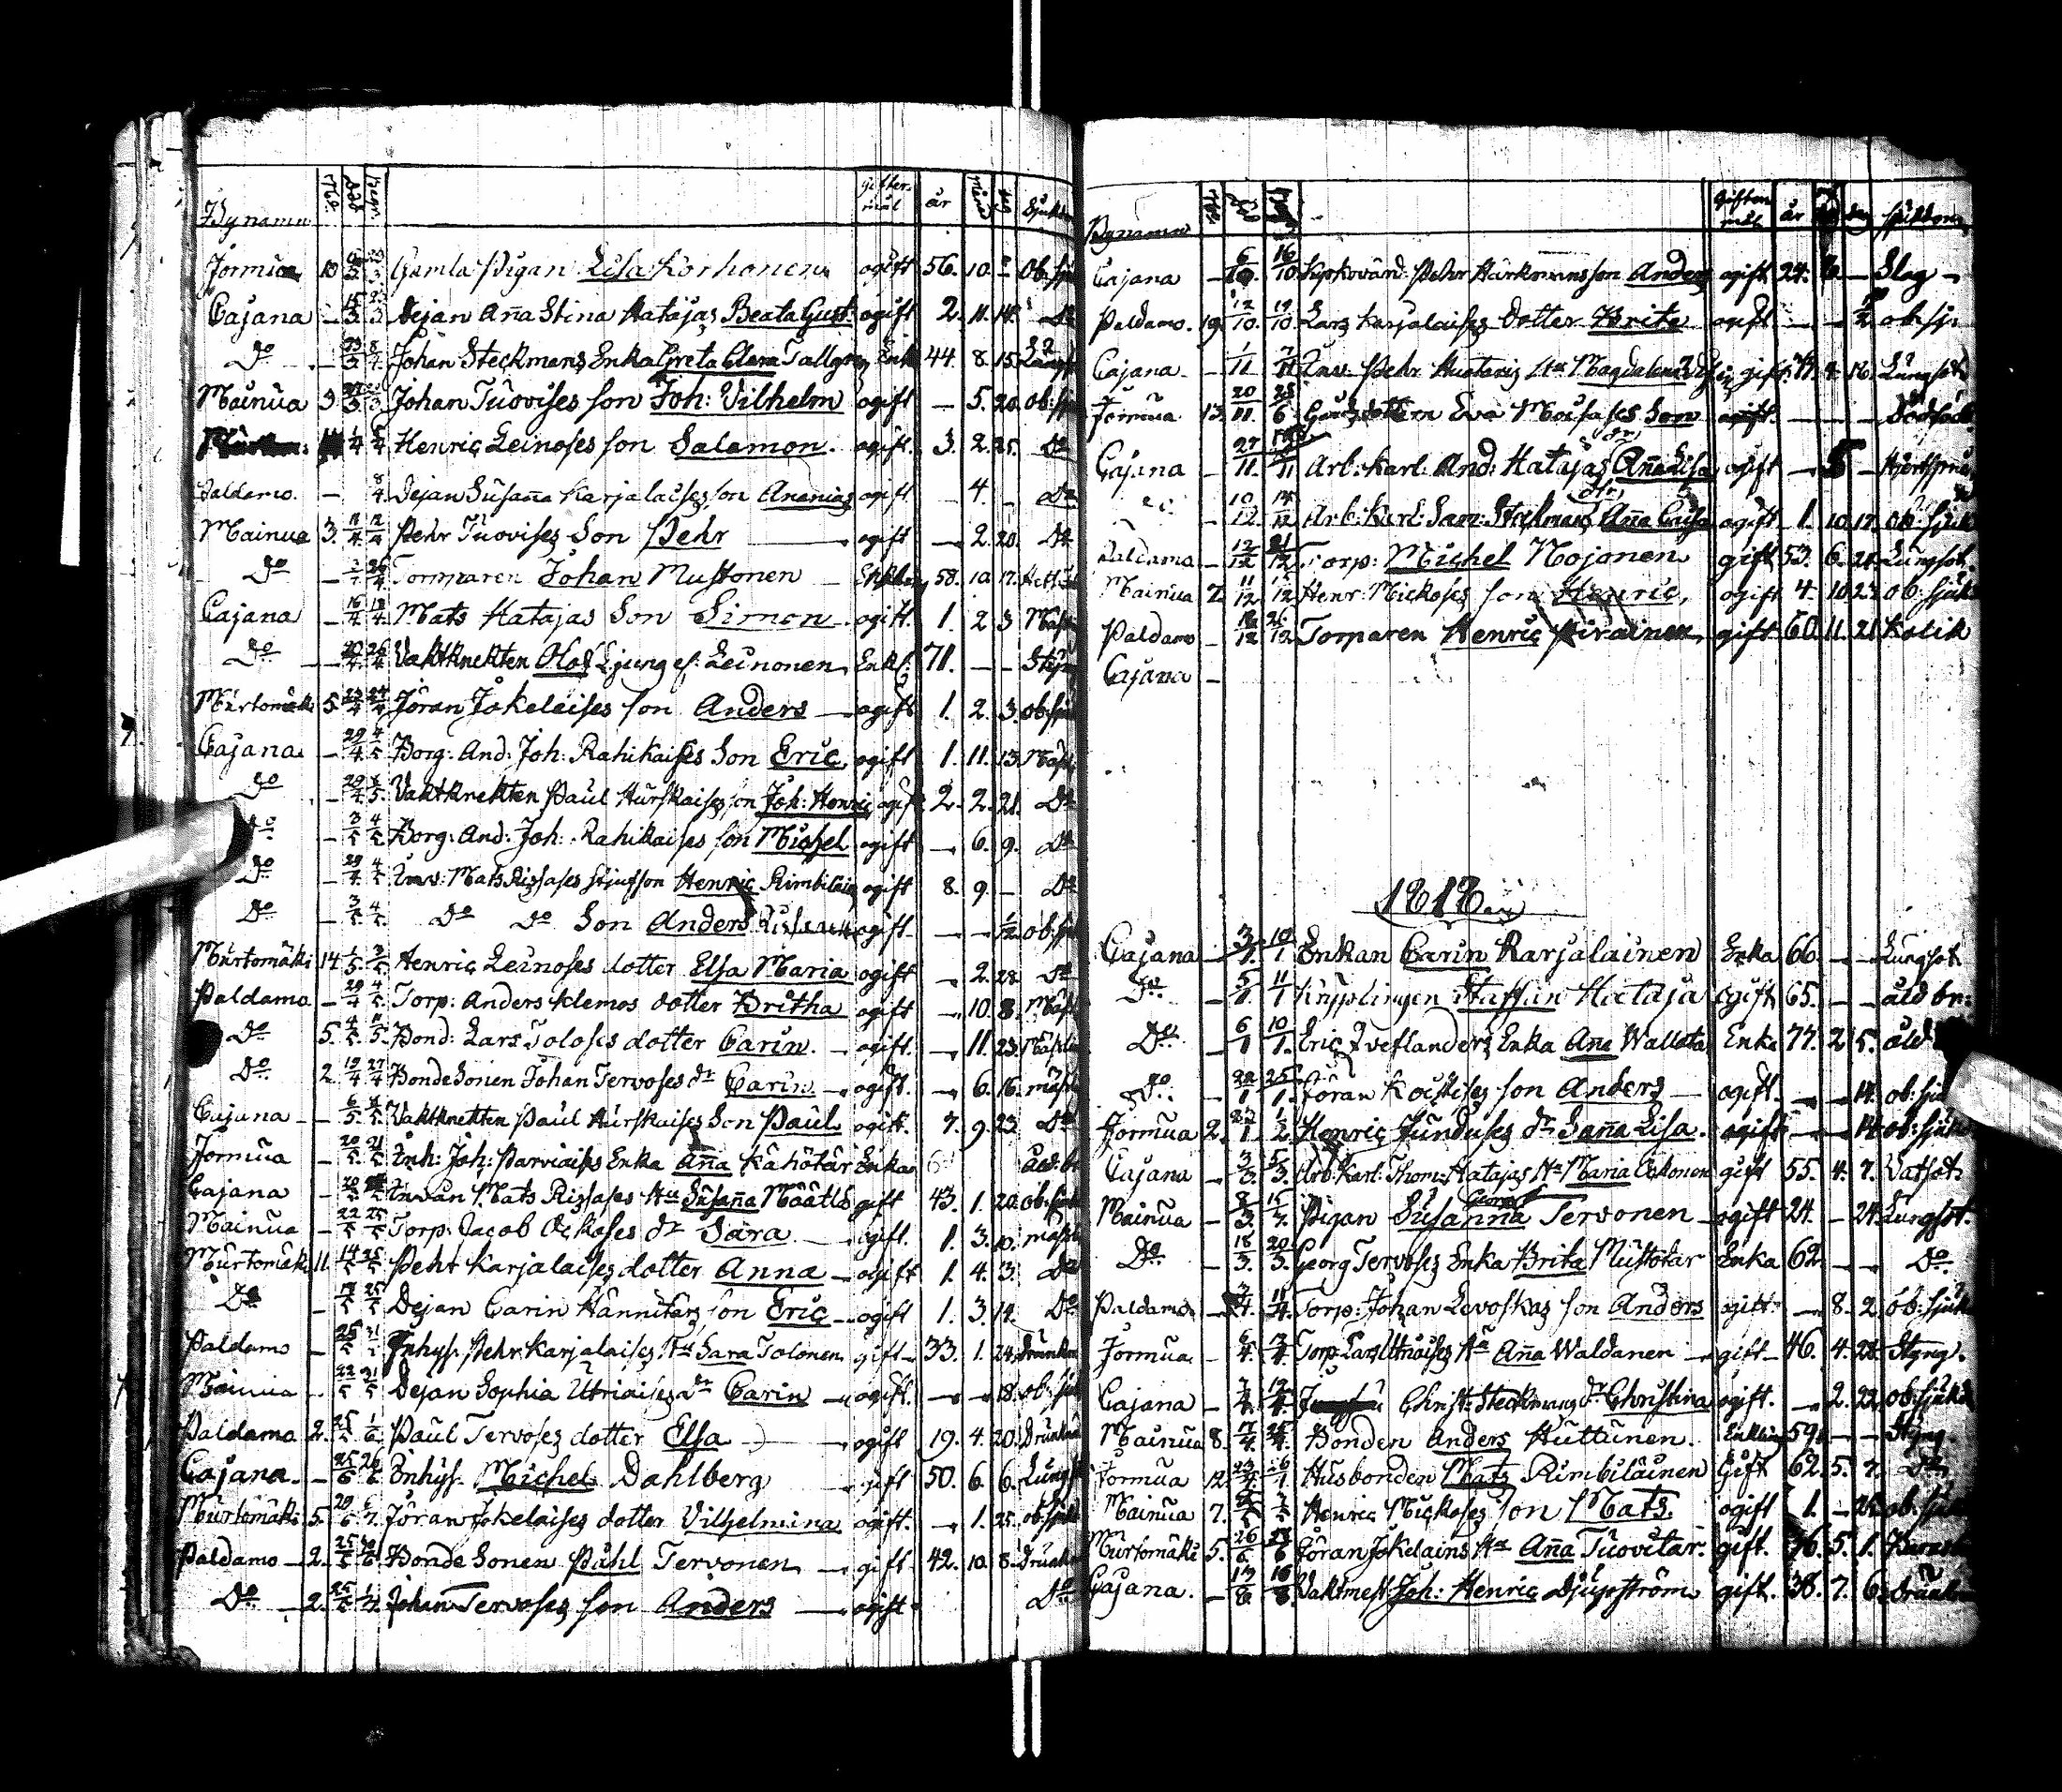 Bynamn No Död Begr. gifter-mål år Månad dag Sjukdom
Jormua 10 Gamla Pigan Lisa Korhonen ogift 56. 10. - ob: sju
Cajana - 15/3 23/3 Dejan Aña Stina Hatajas Beata Gust: ogift 2. 11. 14. Do
Do - 23/3 8/4 Johan Steckmans Enka Greta Elena Tallgren Enka 44. 8. 15. Lungs
Mainua 3 Johan Tuovises son Joh: Vilhelm ogift - 5. 20. ob: sju
1/4 5/4 Henric Leinoses son Salamon. ogift. 3. 2. 25. Do
Paldamo. - 8/4 Dejan Susaña Karjalaises son Ananias ogift - 4. - Do
Mainua 3. 11/4 12/4 Pehr Tuovises Son Pehr ogift - 2. 20. Do
Do - 26/4 Torpparen Johan Mustonen - Enkling 58. 10. 17.
Cajana - 16/4 18/4 Mats Hatajas Son Simon - ogift. 1. 2 3 Mäsl
Do - 20/4 26/4 Vaktknekten Olof Ljung el. Leinonen, Enkl: 71. - - Styng
Murtomäki 5 23/4 27/4 Jöran Jokelaises son Anders - ogift 1. 2. 3. ob: sju
Cajana - 29/4 4/5 Borg: And: Joh: Rahikaises Son Eric, ogift 1. 11. 13. Mäsl
Do - 29/4 4/5 Vaktknekten Paul Hurskaises son Joh: Henric, ogift 2. 2. 21. Do
Do - 3/5 4/5 Borg: And: Joh: Rahikaises son Michel ogift - 6. 9. Do
Do - 29/4 4/5 Inv: Mats Rissases stjufson Henric Rimbiläin ogift 8. 9. - Do
Do - 3/5 4/5 Do Do Son Anders ogift - - 1/2 ob: sju
Murtomäki 14 1/5 3/5 Henric Leinoses dotter Elsa Maria ogift - 2. 28. Do
Paldamo - 29/4 4/5 Torp: Anders Klemos dotter Britha ogift - 10. 8. Mäsl
Do 5. 4/5 11/5 Bond: Lars Toloses dotter Carin. - ogift. - 11. 23. Mäsl
Do 2. 19/4 27/4 Bonde Sonen Johan Tervoses dr Carin - ogift. - 6. 16. mäsl
Cajana - - 6/5 8/5 Vaktknekten Paul Hurskaises Son Paul ogift. 7. 9. 23 Do
Jormua - 20/5 21/5 Inh: Joh: Parviaises Enka Aña Kähötär Enka
Cajana - 20/5 Invan Mats Rissases Hu Susaña Määttä gift 43. 1. 20. ob: sju
Mainua - 22/5 25/5 Torp: Jacob Ockoses dr Sara - ogift. 1. 3. 10. mäsl
Murtomäki 11. 14/5 25/5 Pehr Karjalaises dotter Anna - ogift 1. 4. 3. Do
Do - 17/5 25/5 Dejan Carin Hännitärs son Eric - ogift 1. 3. 14. Do
Paldamo - 25/5 31/5 Inhys. Pehr Karjalaises Hu Sara Tolonen gift - 33. 1. 24. Drunkna
Mainua - 22/5 31/5 Dejan Sophia Utriaises dr Carin - ogift. - - 18. ob: sju
Paldamo 2. 25/5 1/6 Paul Tervoses dotter Elsa - ogift 19. 4. 20. Drunkna
Cajana. - 25/6 26/6 Inhys. Michel Dahlberg - gift 50. 6. 6. Lungs
Murtomäki 5. 29/6 6/7 Jöran Jokelaises dotter Vilhelmina ogift. - 1. 25. ob: sju
Paldamo - 2. 25/5 Bonde Sonen Påhl Tervonen - gift 42. 10. 8. Drunkn
Do - 2. 25/5 Johan Tervoses son Anders - ogift Do
Bynamn No Död Begr Giftermål år dag sjukdom
Cajana 6/10 16/10 Pehr Härkmans son Anders ogift 24. - Slag -
Paldamo. 19. 12/10 19/10 Lars Karjalaises Dotter Brita ogift - - 1/2 ob: sj:
Cajana - 1/11 7/11 Inv Pehr Huotaris Hu Magdalena gift. Lungsot
Jormua 13. 20/11 Eva Moisases Son ogift. - - - Dödföd.
Cajana - 27/11 Arb: Karl: And: Hatajas dr Aña Lisa ogift - 5 -
- 10/12 14/12 Arb: Karl: Sam: Steckmans dtr Aña Caisa ogift 1. 10. 17. ob: sjuk
Paldamo - 12/12 21/12 Torp: Michel Mojonen gift 53. 6. 24. Lungsot.
Mainua 7. 11/12 15/12 Henr: Mickoses son Henric, ogift 4. 10. 27. ob: sjuk
Paldamo - 26/12 Torparen Henric Piirainen, gift 60. 11. 21. Kolik
Cajana -
1818
Cajana - 3/1 10/1 Enkan Carin Karjalainen Enka 66. - - Lungsot
Do - 5/1 11/1 Krypplingen Staffan Hataja Ogift 65. - - åld br:
Do - 6/1 10/1 Eric Tveflanders Enka Ana Wallata Enka 77. 2 5. åld
Do - 22/1 25/1 Jöran Koistises son Anders - ogift. - - 14. ob: sju
Jormua 2. 1/2 Henric Junduses dr Saña Lisa. ogift - - 14. ob: sjuk
Cajana - 3/3 5/3 Arb: Karl: Thom: Hatajas Hu Maria Ockonen gift 55. 4. 7. Vatsot
Mainua - 8/3 15/3 Pigan Susanna Georgs Tervonen - ogift 24. - 24. Lungsot.
Do - 18/3 20/3 Georg Tervoses Enka Brita Mustotar Enka 62. - - Do
Paldamo - 11/4 Torp: Johan Levoskas son Anders ogift - 8. 2. ob: sjuk
Jormua - 6/4 Torp: Lars Utriaises Hu Aña Waldanen - gift - 46. 4. 28. Styng.
Cajana - 7/4 12/4 Christ: Steckmans dr Christina ogift. - 2. 22. ob: sjukd
Mainua 8. 17/4 Bonden Anders Huttunen. Enkling 59. - - Styng.
Jormua 12. Husbonden Mats Rimbiläinen Gift 62. 5. 7. Do
Mainua 7. Henric Mickoses son Mats. ogift 1. - ob: sju
Murtomäki 5. 26/6 Jöran Jokelains Hu Aña Tuovitar. gift. 5. 1.
Cajana. - 13/8 16/8 Vaktmest Joh: Henric Djupström gift. 38. 7. 6. Drunkn